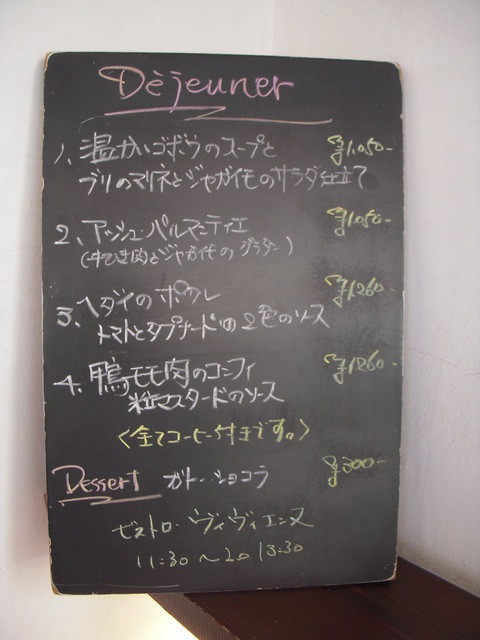 Déjeuner
1、温かいゴボウのスープと ¥1,050-
ブリのマリネとジャガイモのサラダ仕立て
2、アッシュ・パルマンティエ ¥1,050-
(牛ひき肉とジャガイモのグラタン)
3、ヘダイのポワレ ¥1,260-
トマトとタプナードの2色のソース
4、鴨モモ肉のコンフィ ¥1,260-
粒マスタードのソース
〈全てコーヒー付きです。〉
Dessert ガトーショコラ ¥300-
ビストロ・ヴィヴィエンヌ
11:30～